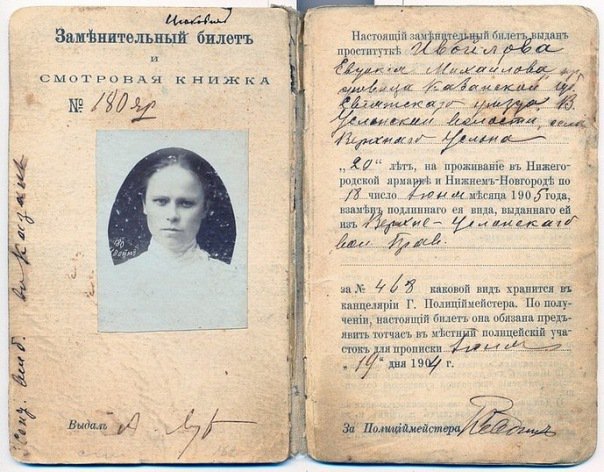 Замѣнительный билетъ
и
СМОТРОВАЯ КНИЖКА
№ 180 яр
Выдалъ
Настоящій замѣнительный билетъ выданъ
проституткѣ
Михайлова
Казанской
Свіяжскаго уѣзда, В
Услонской волости, села
Верхняго Услона
„20“ лѣтъ, на проживаніе въ Нижего-
родской ярмаркѣ и Нижнемъ-Новгородѣ по
18 число іюня мѣсяца 1905 года,
взамѣнъ подлиннаго ея вида, выданнаго ей
изъ Верхне-Услонскаго
вол Прав.
за № 468 каковой видъ хранится въ
канцеляріи Г. Полиціймейстера. По полу-
ченіи, настоящій билетъ она обязана предъ-
явить тотчасъ въ мѣстный полицейскій уча-
стокъ для прописки іюня
„19“ дня 1904 г.
За Полиціймейстера